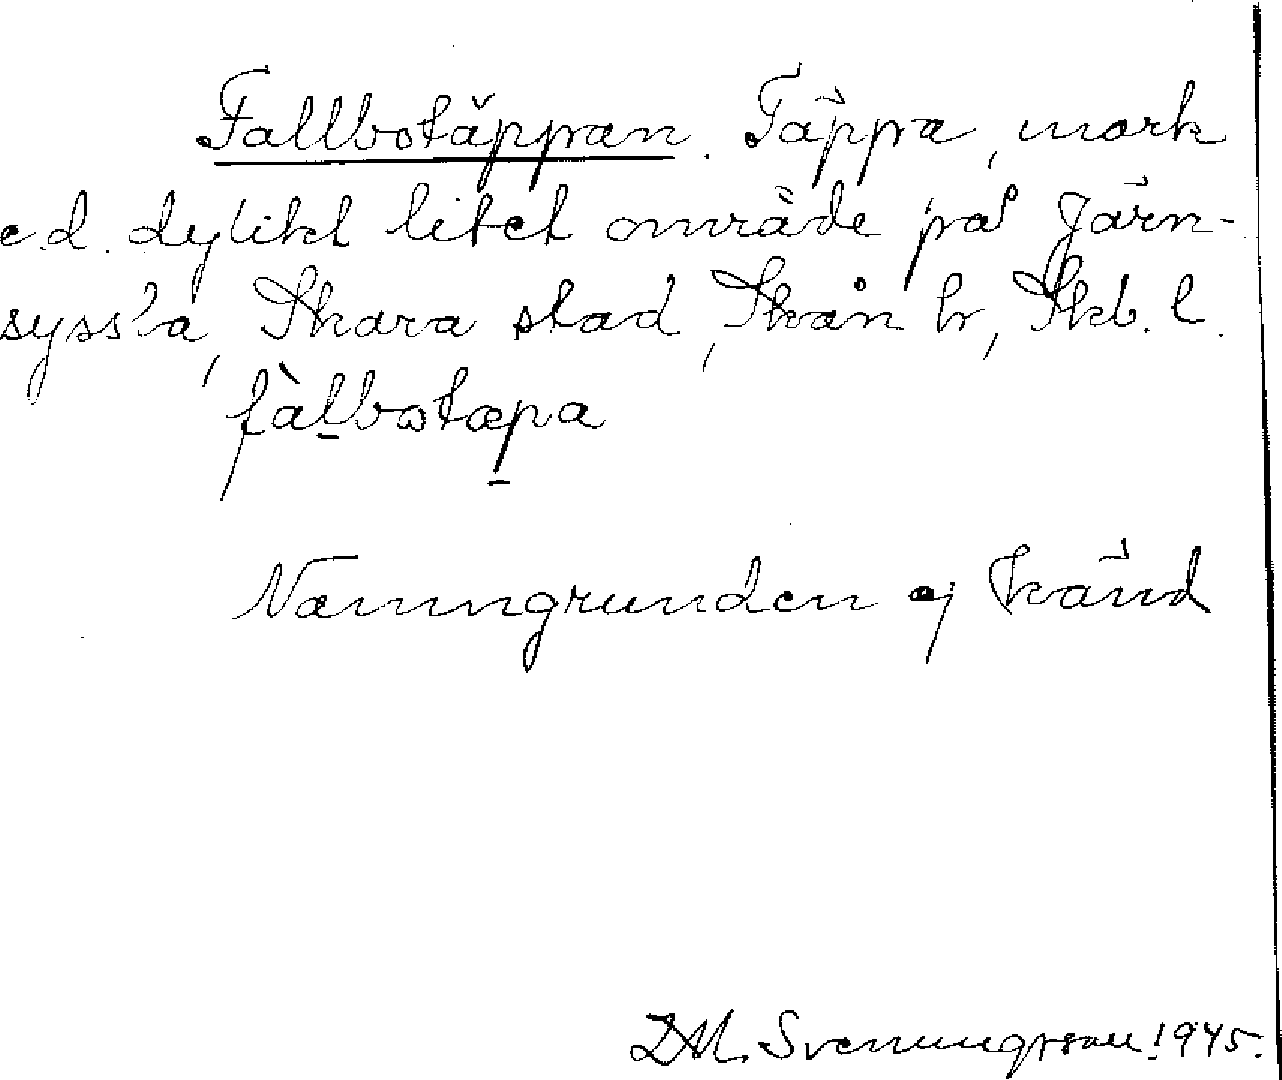 Fallbotäppan. Täppa, mark
e.d. dylikt litet område på Järn-
syssla, Skara stad, Skån hr, Skb. l.
fàlbotæpa
Namngrunden ej känd
D.M. Svenningsson 1945.